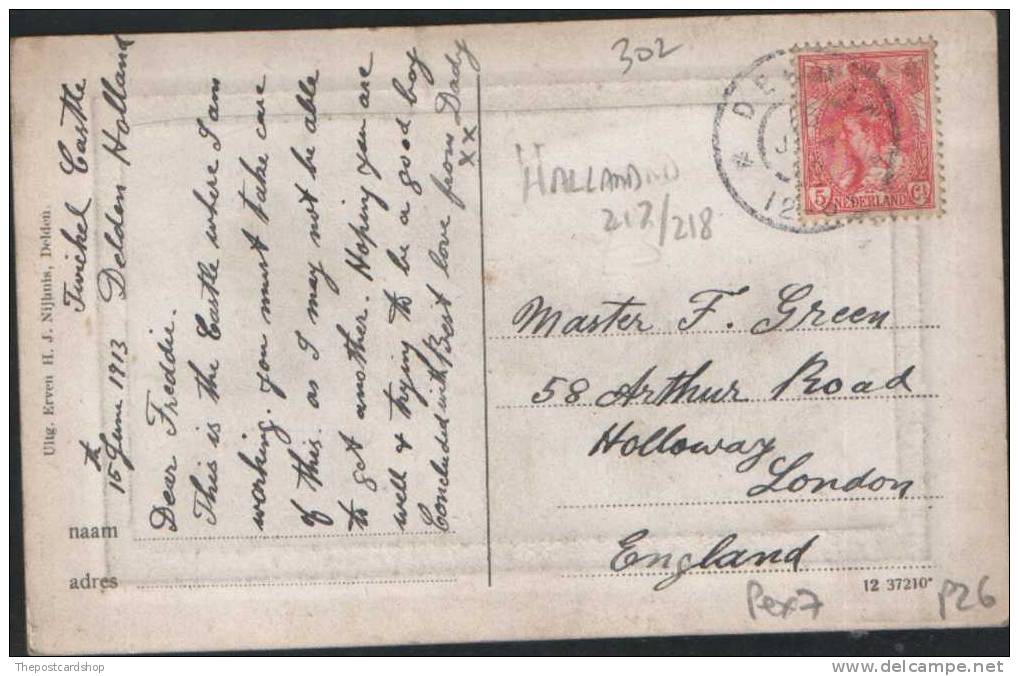 Twickel Castle
15th June 1913 Delden Holland
Dear Freddie.
This is the Castle where I am
working. you must take care
of this. as I may not be able
to get another. Hoping you are
well & trying to be a good boy
Concluded with Best love from Dady
xx
Uitg. Erven H. J. Nijhuis, Delden.
naam
adres
302
HALLAND
217/218
5 Ct
NEDERLAND
Master F. Green
58 Arthur Road
Holloway
London
England
12 37210*
Pex7
P26
Thepostcardshop
www.delcampe.net